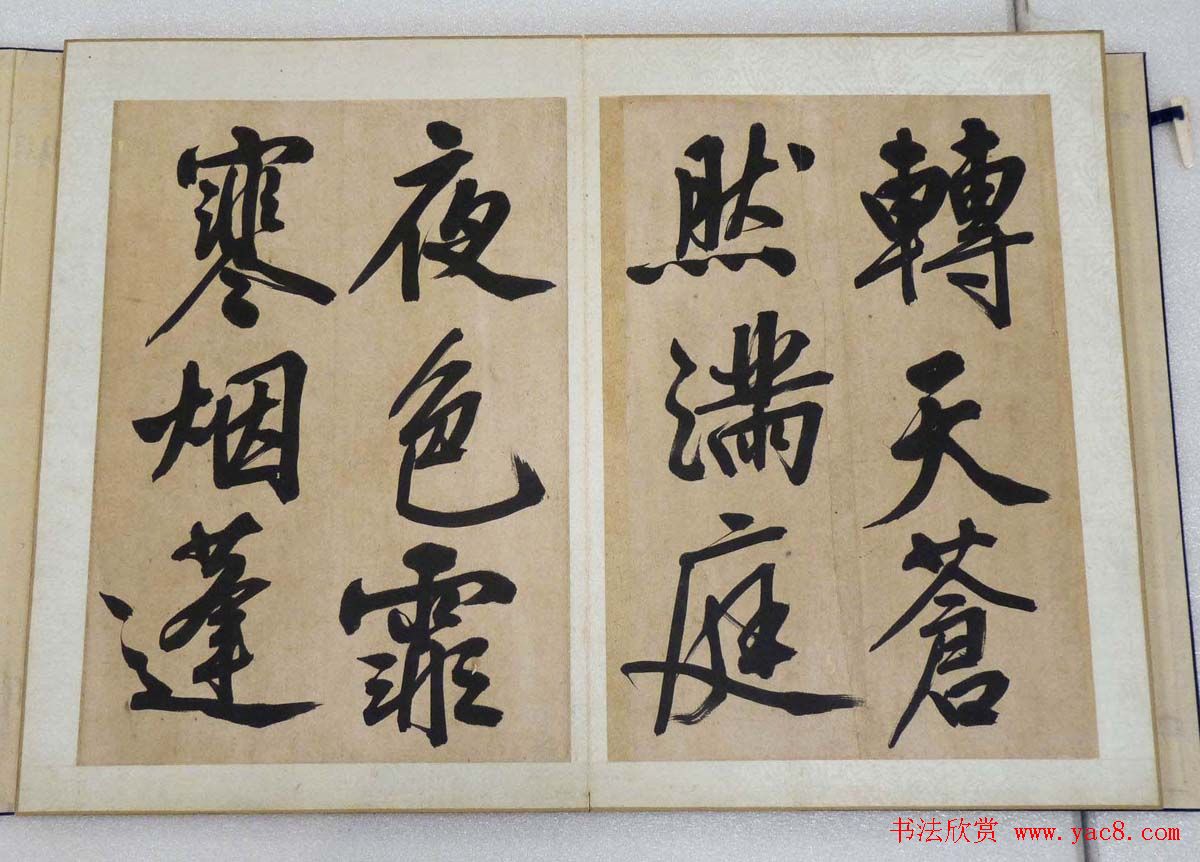 轉天蒼
然満庭
夜色霏
寒烟蓬
书法欣赏 www.yac8.com